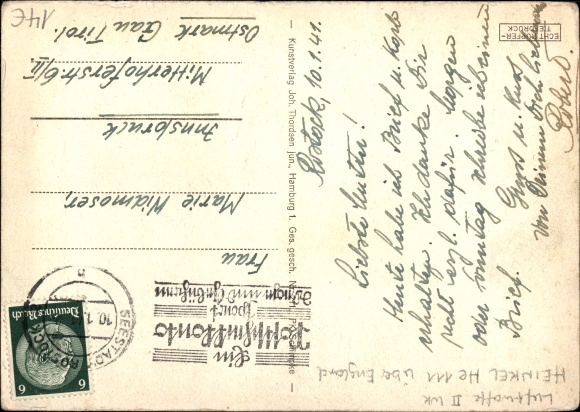 Rostock, 10.1.41.
Liebste Mutti!
Heute habe ich Brief u. Karte
erhalten. Ich danke Dir
recht herzl. dafür. Morgen
oder Sonntag schreibe ich einen
Brief.
Gruss u. Kuss
von Deinem Dich liebenden
ECHT KUPFER-
TIEFDRUCK
Kunstverlag Joh. Thordsen jun., Hamburg 1. Ges. gesch.
Frau
Marie Widmoser,
Innsbruck
Mitterhoferstr. 6/II
Ostmark Gau Tirol.
Ein
Postscheckkonto
spart
Wege und Gebühren
SEESTADT
ROSTOCK
10.1.
n
Deutsches Reich
6
6
14€
Luftwaffe II WK
HEINKEL He 111 über England